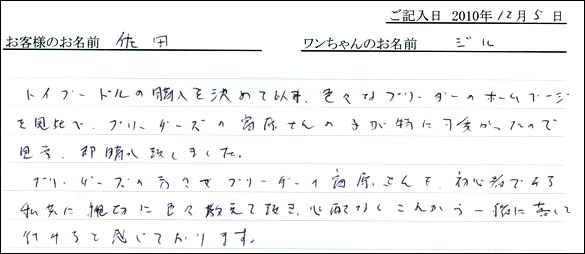 ご記入日 2010年12月5日
お客様のお名前 佐田 ワンちゃんのお名前 ジル
トイプードルの購入を決めて以来、色々なブリーダーのホームページ
を見比べ、ブリーダーズの富原さんの子が特に可愛かったので
見学、即購入致しました。
ブリーダーズの方もブリーダーの富原さんも、初心者である
私共に親切に色々教えて頂き、心配なくこれから一緒に暮して
行けると感じております。